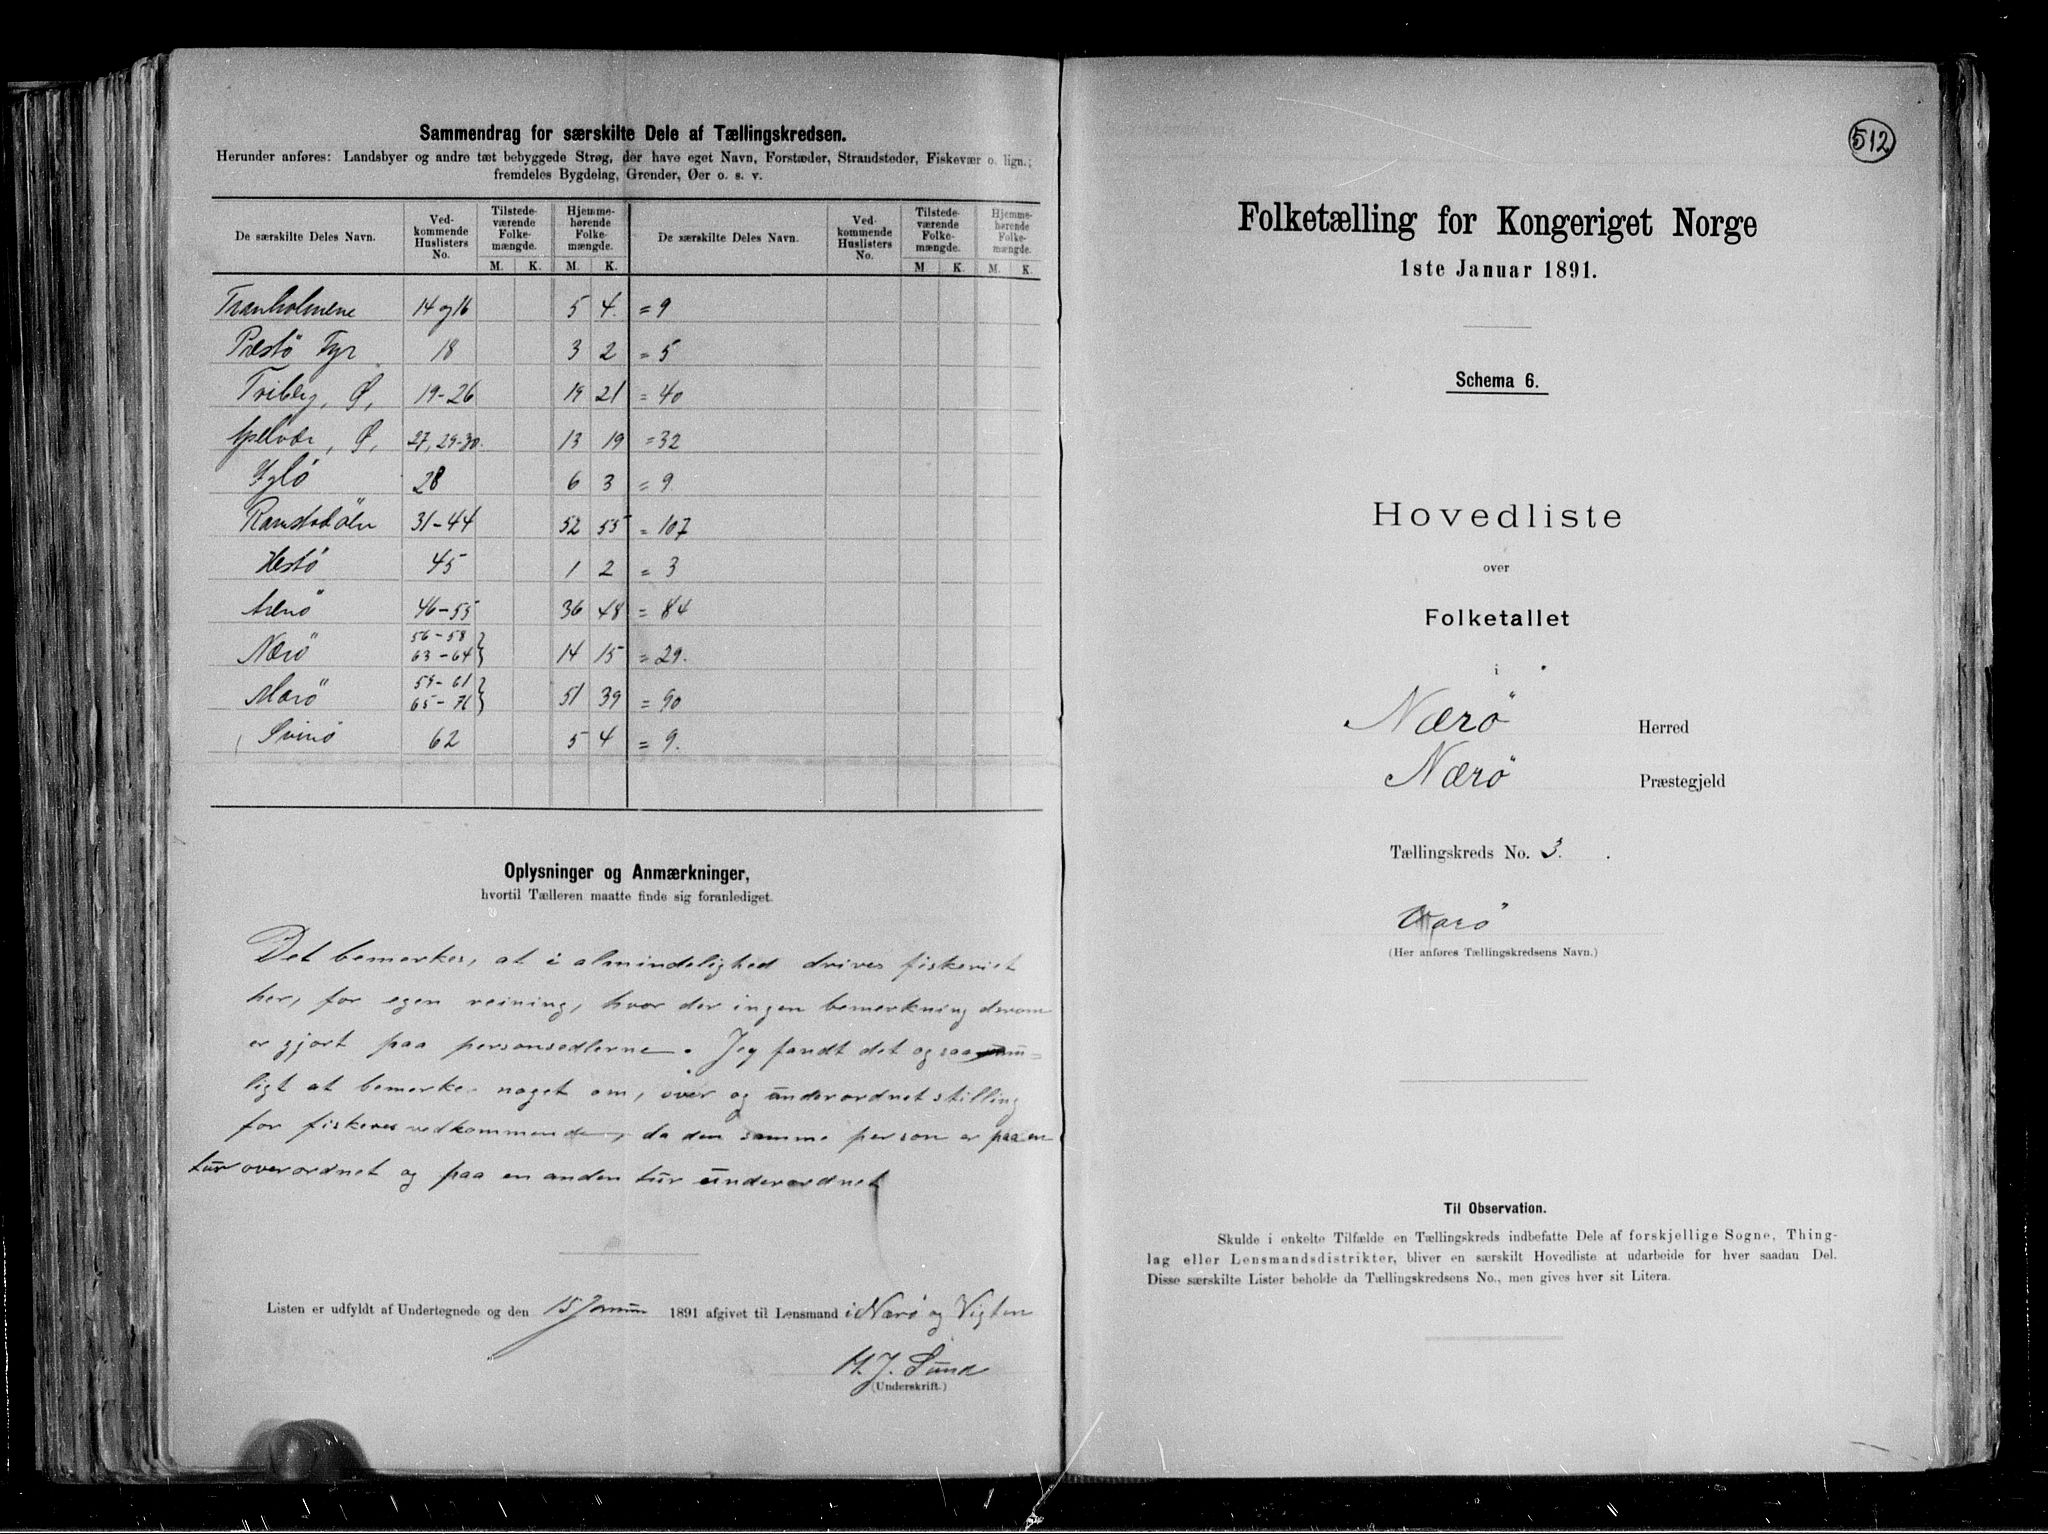 Sammendrag for særskilte Dele af Tællingskredsen.
Herunder anføres: Landsbyer og andre tæt bebyggede Strøg, der have eget Navn, Forstæder, Strandsteder, Fiskevær o. lign.;
fremdeles Bygdelag, Grender, Øer o. s. v.
De særskilte Deles Navn. Ved-kommende Huslisters No. Tilstede-værende Folke-mængde. Hjemme-hørende Folke-mængde. De særskilte Deles Navn. Ved-kommende Huslisters No. Tilstede-værende Folke-mængde. Hjemme-hørende Folke-mængde.
M. K. M. K. M K. M. K.
Tranholmene 14 og 16 5 4. = 9
Præstö Fyr 18 3 2 = 5
Triberg, Ø, 19-26 19 21 = 40
Apelvær, Ø, 27, 29-30. 13 19 = 32
Yglö 28 6 3 = 9
31-44 52 55 = 107
Hestö 45 1 2 = 3
46-55 36 48 = 84
Nærö 56-58 63-64 14 15 = 29.
Marö 59-61 65-76 51 39 = 90
Svinö 62 5 4 = 9.
Oplysninger og Anmærkninger,
hvortil Tælleren maatte finde sig foranlediget.
Det bemerkes, at i almindelighed drives fiskeriet
her, for egen reining, hvor der ingen bemerkning derom
er gjort paa personsedlerne. Jeg fandt det ogsaa umu=
ligt at bemerke noget om, over og underordnet stilling
for fiskeres vedkommende, da den samme person er paa en
tur overordnet og paa en anden tur underordnet
Listen er udfyldt af Undertegnede og den 15 Januar 1891 afgivet til Lensmand i Nærö og Vigten
H. J. Sund
(Underskrift.)
512
Folketælling for Kongeriget Norge
1ste Januar 1891.
Schema 6.
Hovedliste
over
Folketallet
i
Nærö Herred
Nærö Præstegjeld
Tællingskreds No. 3.
(Her anføres Tællingskredsens Navn.)
Til Observation.
Skulde i enkelte Tilfælde en Tællingskreds indbefatte Dele af forskjellige Sogne, Thing-
lag eller Lensmandsdistrikter, bliver en særskilt Hovedliste at udarbeide for hver saadan Del.
Disse særskilte Lister beholde da Tællingskredsens No., men gives hver sit Litera.